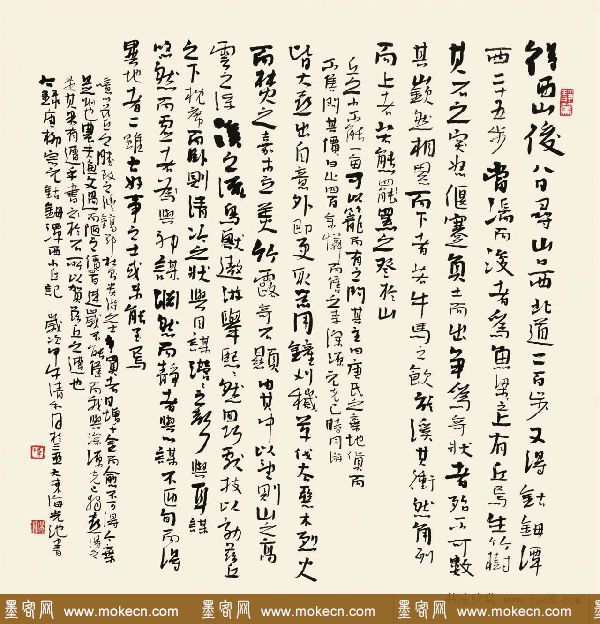 得西山後八日尋山口西北道二百步又得鈷鉧潭
西二十五步當湍而浚者為魚梁之上有丘焉生竹樹
其石之突怒偃蹇負土而出爭為奇狀者殆不可數
其嶔然相累而下者若牛馬之飲於溪其衝然角列
而上者若熊羆之登於山
丘之小不能一畝可以籠而有之問其主曰唐氏之棄地貨而
不售問其價曰止四百余憐而售之李深源元克己時同遊
皆大喜出自意外即更取器用鏟刈穢草伐去惡木烈火
而焚之嘉木立美竹露奇石顯由其中以望則山之高
雲之浮溪之流鳥獸遨遊舉熙熙然回巧獻技以効茲丘
之下枕席而臥則清泠之狀與目謀瀯瀯之聲與耳謀
悠然而虛者與神謀淵然而靜者與心謀不匝旬而得
異地者二雖古好事之士或未能至焉
噫以茲丘之勝致之灃鎬鄠杜則貴遊之士爭買者日增千金而愈不可得今棄
是州也農夫漁父過而陋之價四百連歲不能售而我與深源克己獨喜得之
是其果有遭乎書之於石所以賀茲丘之遭也
右錄唐柳宗元鈷鉧潭西小丘記 歲次甲午清和月於三亞大東海
墨客网 www.mokecn.com 墨客网 www.mokecn.com 墨客网